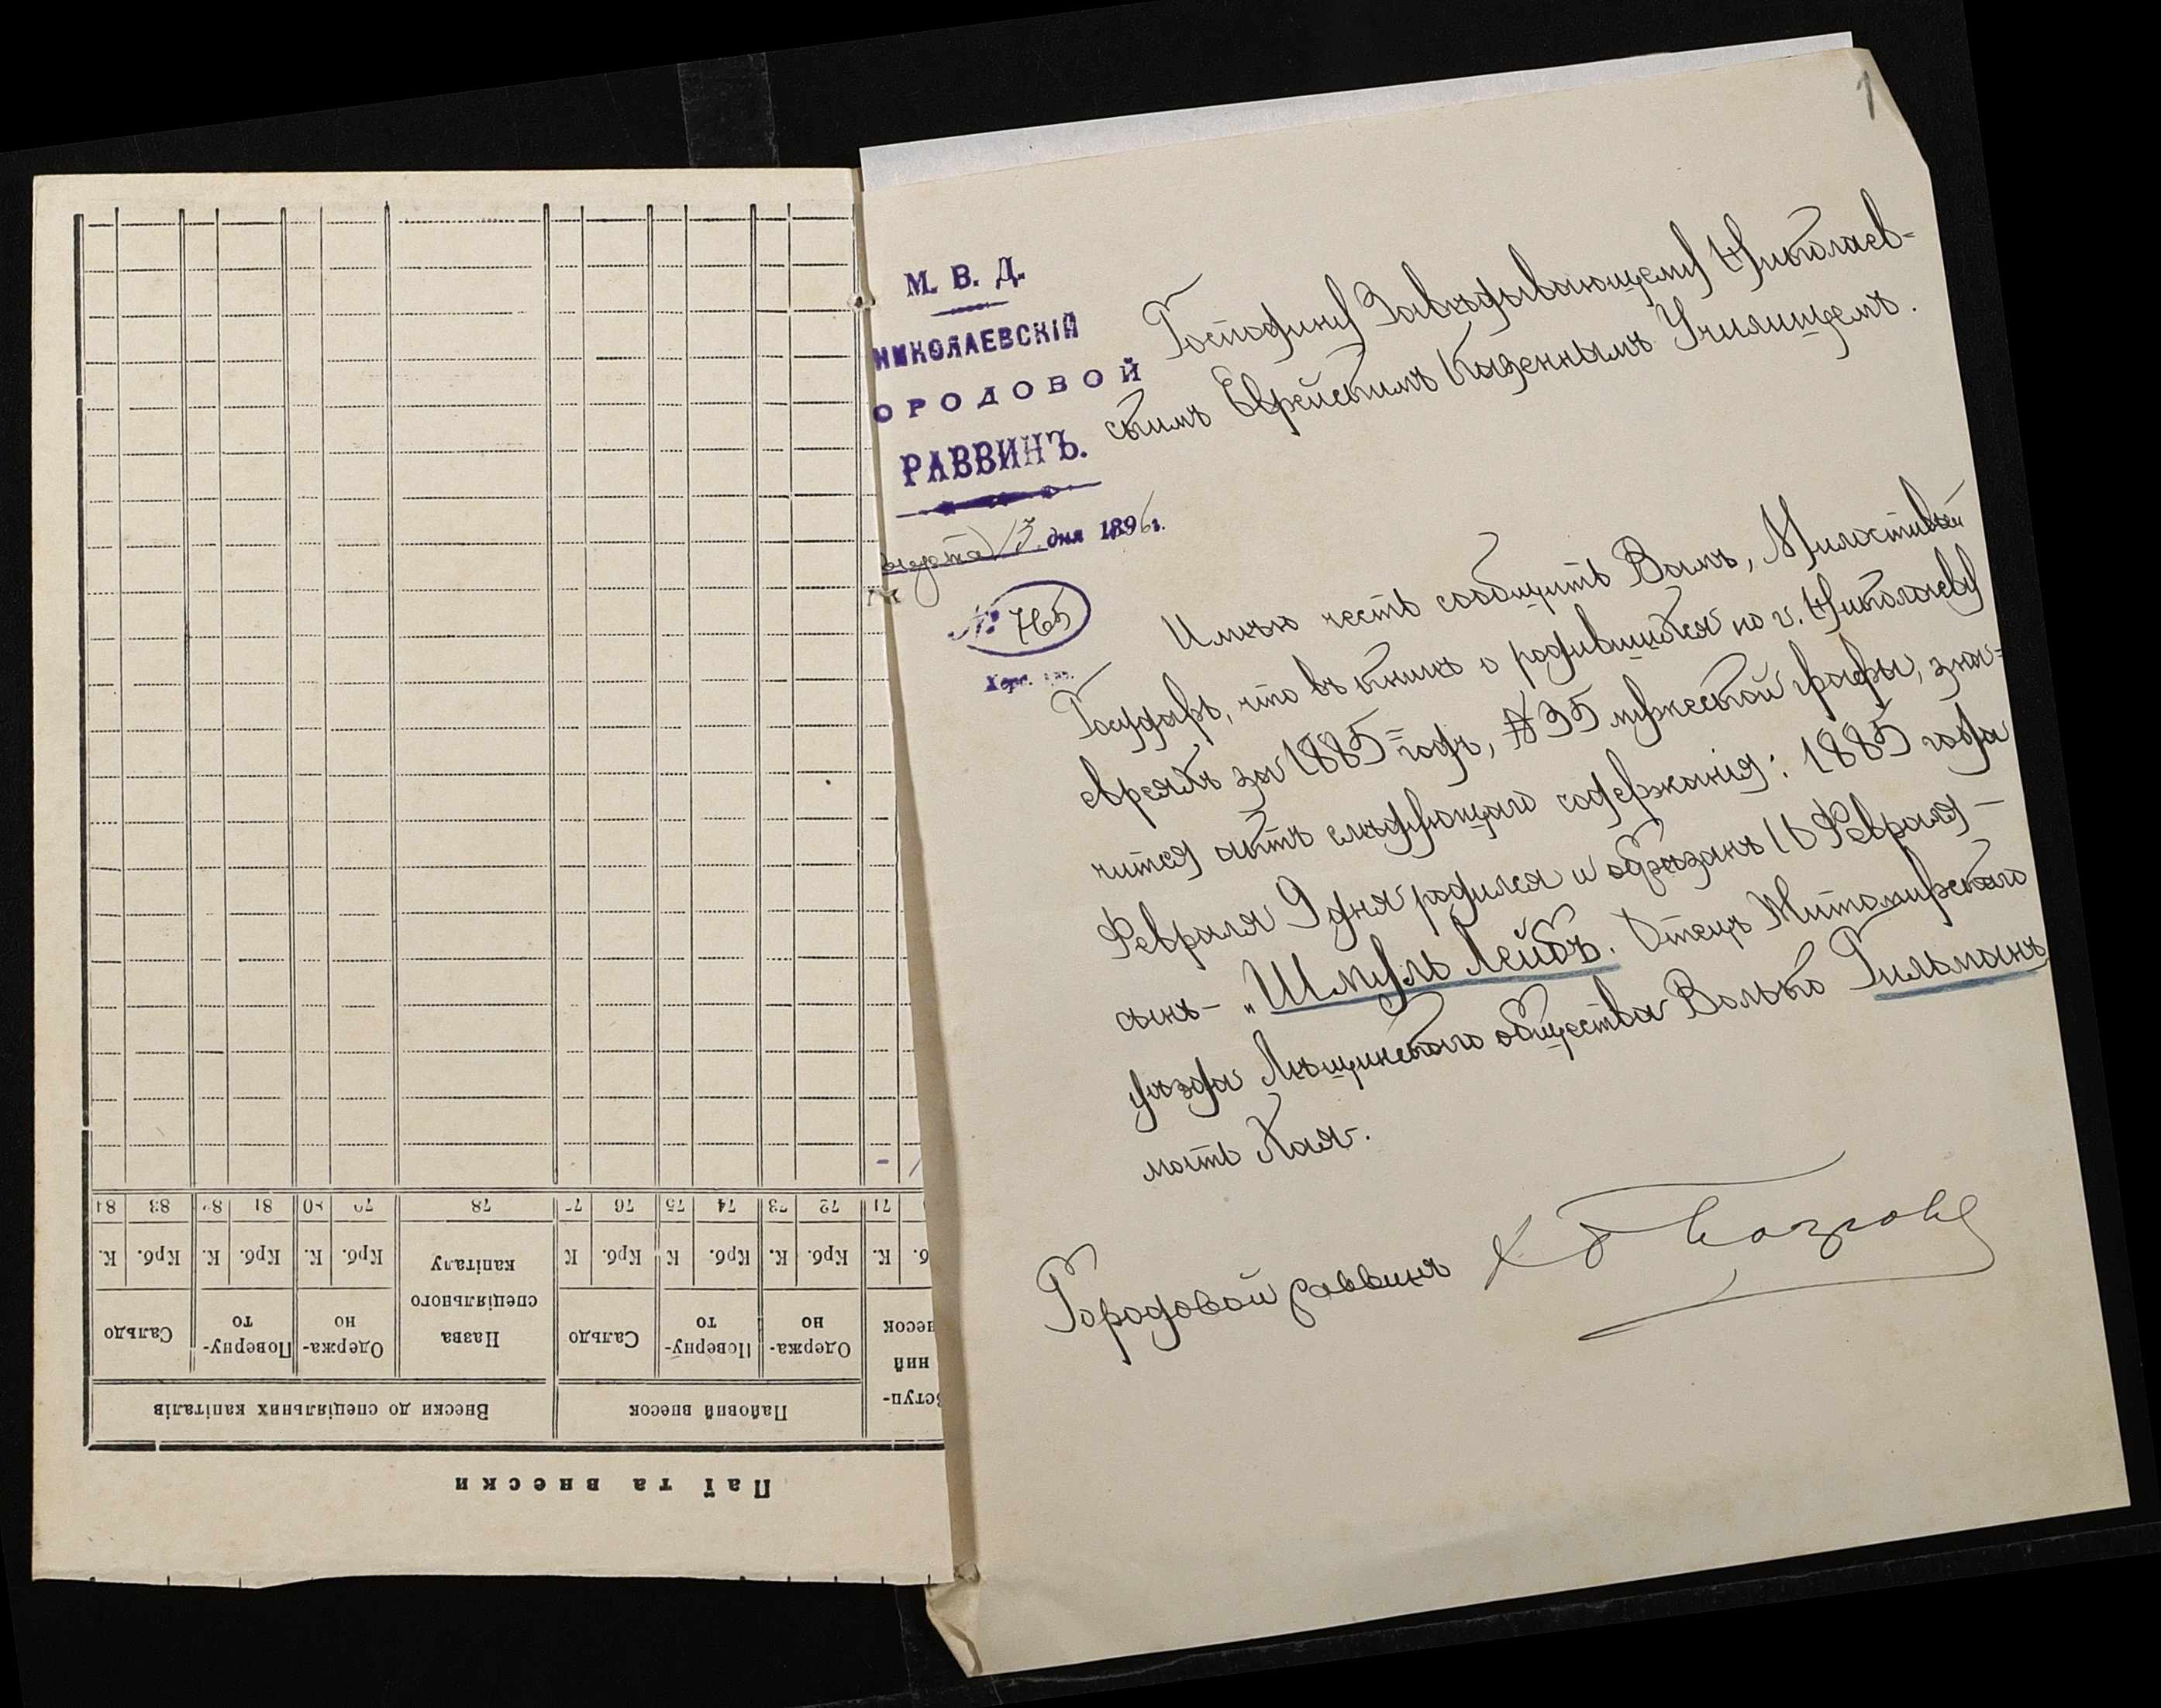 Паї та внески
Внески до спеціяльних капіталів
Пайовий внесок
Вступ-
ний
внесок
Сальдо
Поверну-
то
Одержа-
но
Назва
спеціяльного
капіталу
Сальдо
Поверну-
то
Одержа-
но
К. Крб. К. Крб. К. Крб. К Крб. К Крб. К. Крб. К.
84 83 82 81 80 79 78 77 76 75 74 73 72 71
1
М. В. Д.
НИКОЛАЕВСКІЙ
ОРОДОВОЙ
РАВВИНЪ.
13 дня 1896 г.
№ 765
Херс. губ.
Господину Завѣдывающему Николаев-
скимъ Еврейскимъ Казеннымъ Училищемъ.
Имѣю честь сообщить Вамъ, Милостивый
Государь, что въ книгѣ о родившихся по г. Николаеву
евреяхъ за 1885 годъ, №35 мужеской графы, зна-
чится актъ слѣдующаго содержанія: 1885 года
Февраля 9 дня родился и обрѣзанъ 16 Февраля -
сынъ - "Шмуль Лейбъ. Отецъ Житомирскаго
уѣзда Лѣщинскаго общества Волько Гильманъ,
мать Хая.
Городовой раввинъ